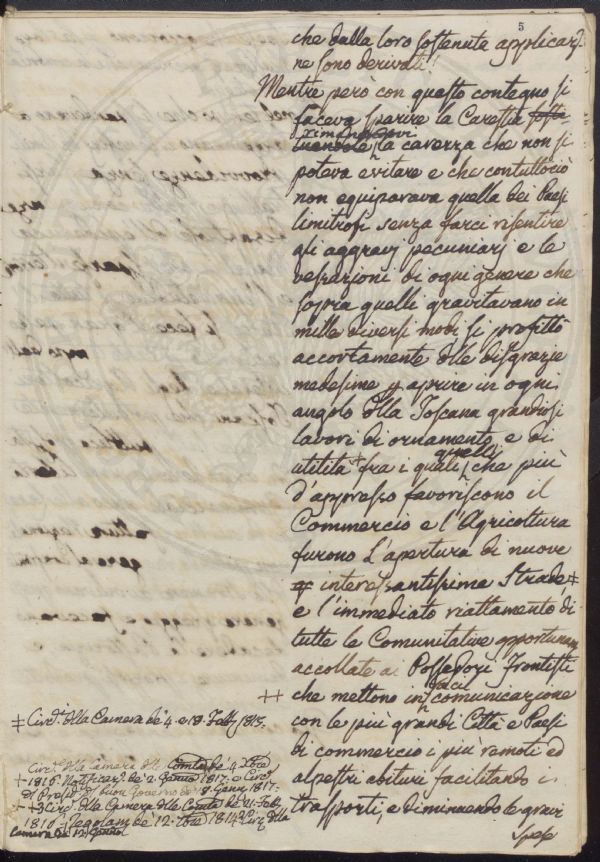 5
che dalla loro sostenuta applicaz.
ne sono derivati!
Mentre però con questo contegno si
faceva sparire la Carestia
la carezza che non si
poteva evitare e che contuttociò
non equiparava quella dei Paesi
limitrofi senza farci risentire
gli aggravj pecuniarj e le
vessazioni di ogni genere che
sopra quelli gravitavano in
mille diversi modi si profittò
accortamente dlle disgrazie
medesime p aprire in ogni
angolo dlla Toscana grandiosi
lavori di ornamento, e di
quelli
utilità + fra i quali che più
d'appresso favoriscono il
Commercio e l'Agricoltura
furono L'apertura di nuove
interessantissime Strade ‡
e l'immediato riattamento di
tutte le Comunitative opportunam
accollate ai Possessori Frontisti
faci
che mettono in comunicazione
con le più grandi Città e Paesi
di commercio i più remoti ed
alpestri abituri facilitando i
trasporti, e diminuendo le gravi
spese
‡ Circ. dlla Camera de' 4. e 18. Febb. 1815.
Circ. dlla Camera dlle Comtà de' 4.
+ 1816. Notificaz. de' 2. 1817. e Circ.
di buon Governo de' 8. Genn. 1817.
Circ. dlla Camera dlle Comtà de' 21. Febb.
1816. Regolam. de' 12. 1814. Circ. dlla
Camera de' 12.